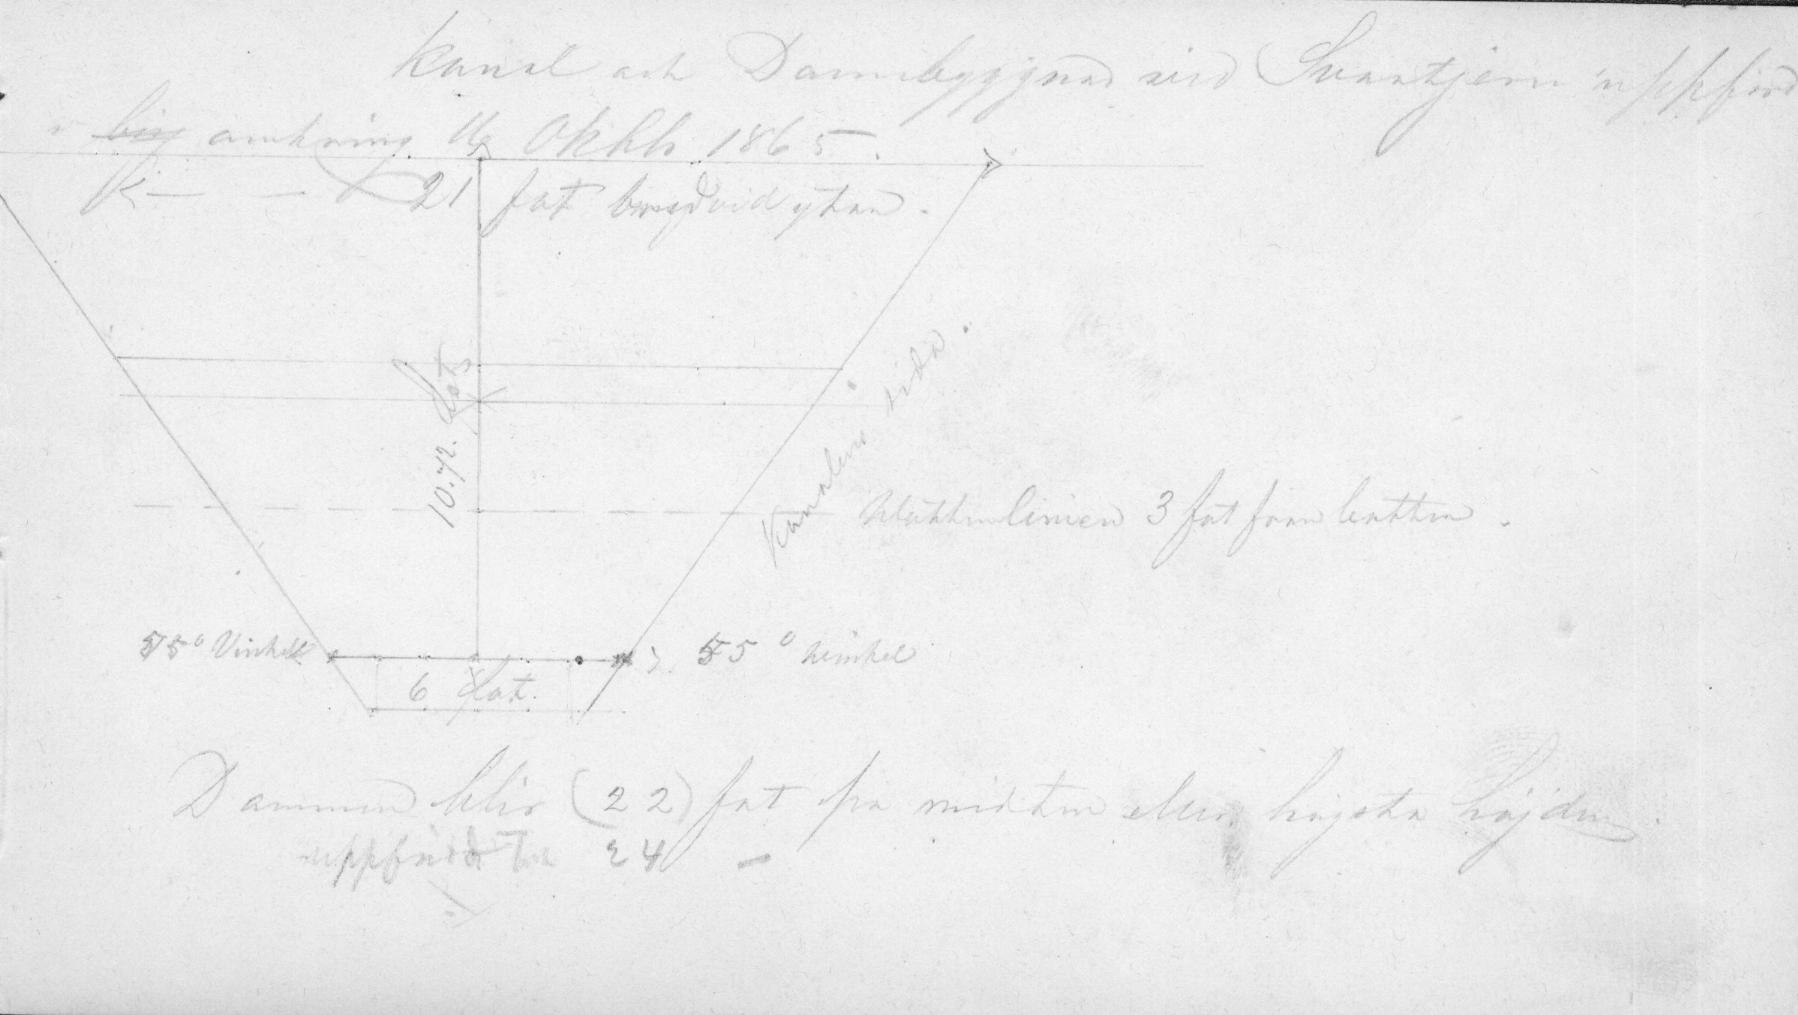 Kanal och Dambyggnad vid Svartjern uppförd
omkring Oktbr 1865.
21 fot bredvid ytan.
10.72. fot
Kanalens sida.
Wattenlinien 3 fot från botten.
55° Vinkel
55° winkel
6 fot.
Dammen blir (22) fot på midten eller högsta höjden.
uppförd till 24 —